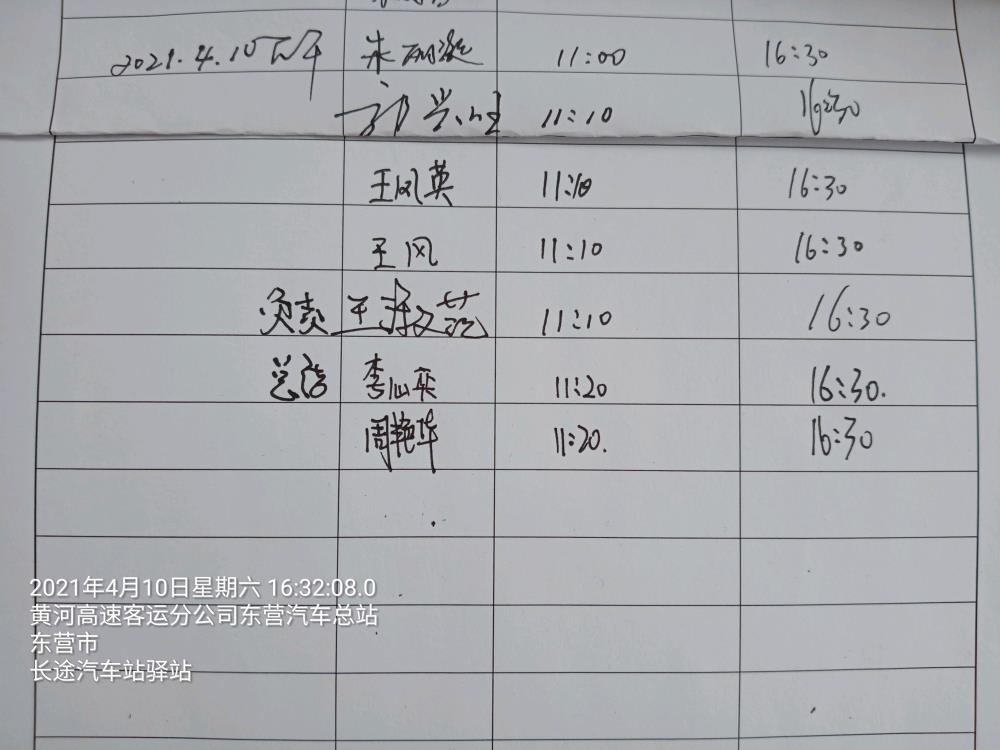 2021.4.10下午 朱丽凝 11:00 16:30
11:10 16:30
王凤英 11:10 16:30
王风 11:10 16:30
负责 王 11:10 16:30
总结 李仙英 11:20 16:30.
周艳华 11:20. 16:30
2021年4月10日星期六 16:32:08.0
黄河高速客运分公司东营汽车总站
东营市
长途汽车站驿站